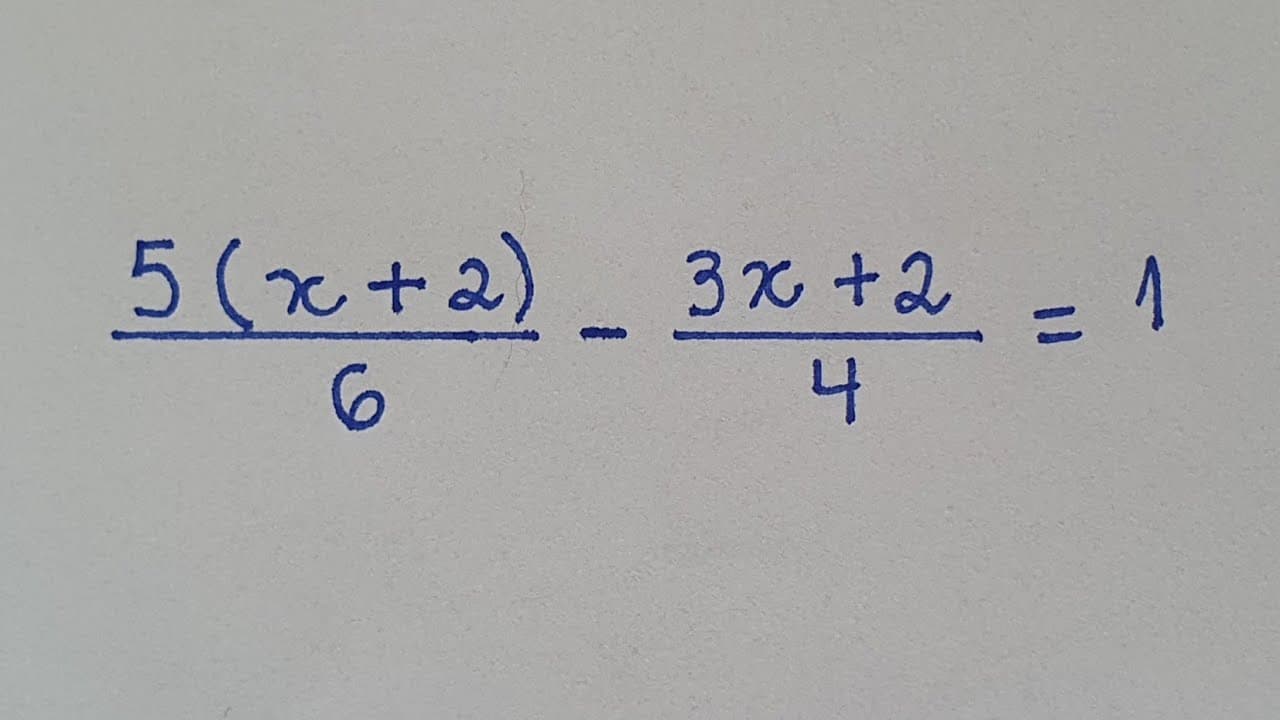 5(x+2)/6 - 3x+2/4 = 1